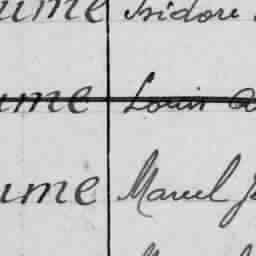 ume Isidore
ume Louis
ume Marcel J